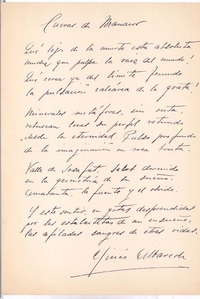 Cuevas de Manacor
Qué lejos de la muerte esta absoluta
mudez que palpa la raíz del mundo!
Qué cerca ya del límite fecundo
la pulsación calcárea de la gruta.
Minerales metáforas, sin
rehuyen por su perfil rotundo
desde la eternidad. Pulso profundo
de la imaginación en roca bruta.
Valle de Josafat, salobre desnudo
en la geometría de su sueño.
la fuente y el olvido.
Y este sentir en gotas desprendidas
por las estalactitas de mi
las afiladas sangres de otras vidas.
Ginés de Albareda